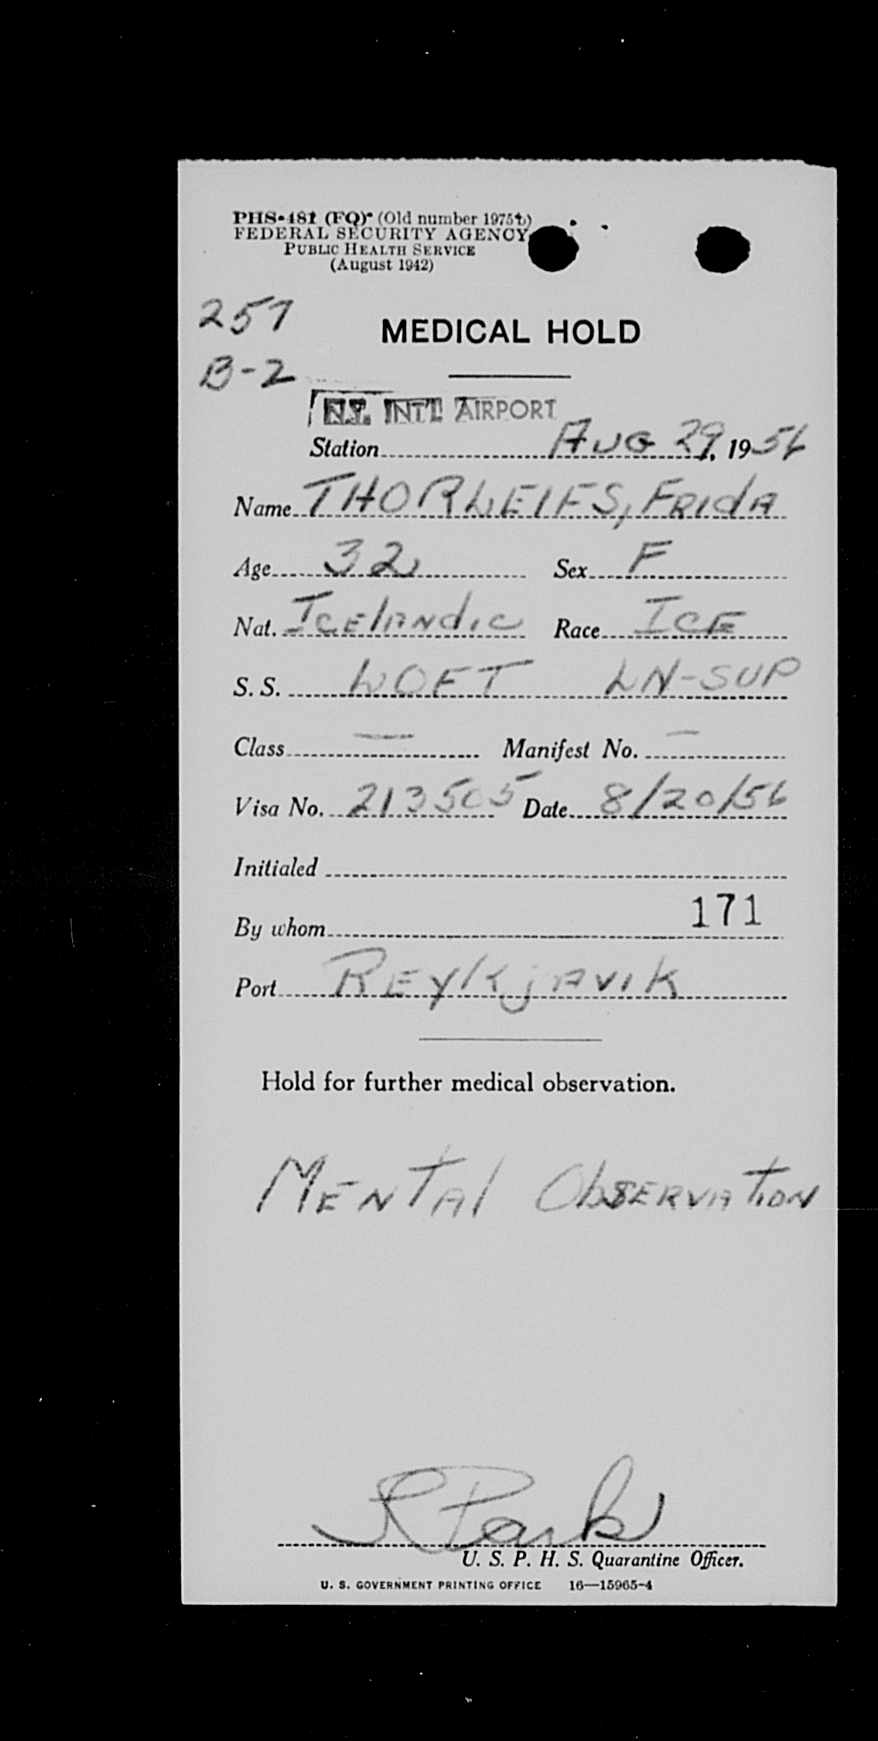 PHS-481 (FQ) (Old number 1975b)
FEDERAL SECURITY AGENCY
PUBLIC HEALTH SERVICE
(August 1942)
257
B-2
MEDICAL HOLD
N.Y. INT'L AIRPORT
Station AUG 29, 1956
Name THORLEIFS, FRIdA
Age 32 Sex F
Nat. IcElANdic Race ICE
S. S. LOFT LN-SUP
Class — Manifest No. —
Visa No. 213505 Date 8/20/56
Initialed
By whom 171
Port REYKjAVIK
Hold for further medical observation.
MENTAl ObSERVATION
R Park
U. S. P. H. S. Quarantine Officer.
U. S. GOVERNMENT PRINTING OFFICE 16—15965-4